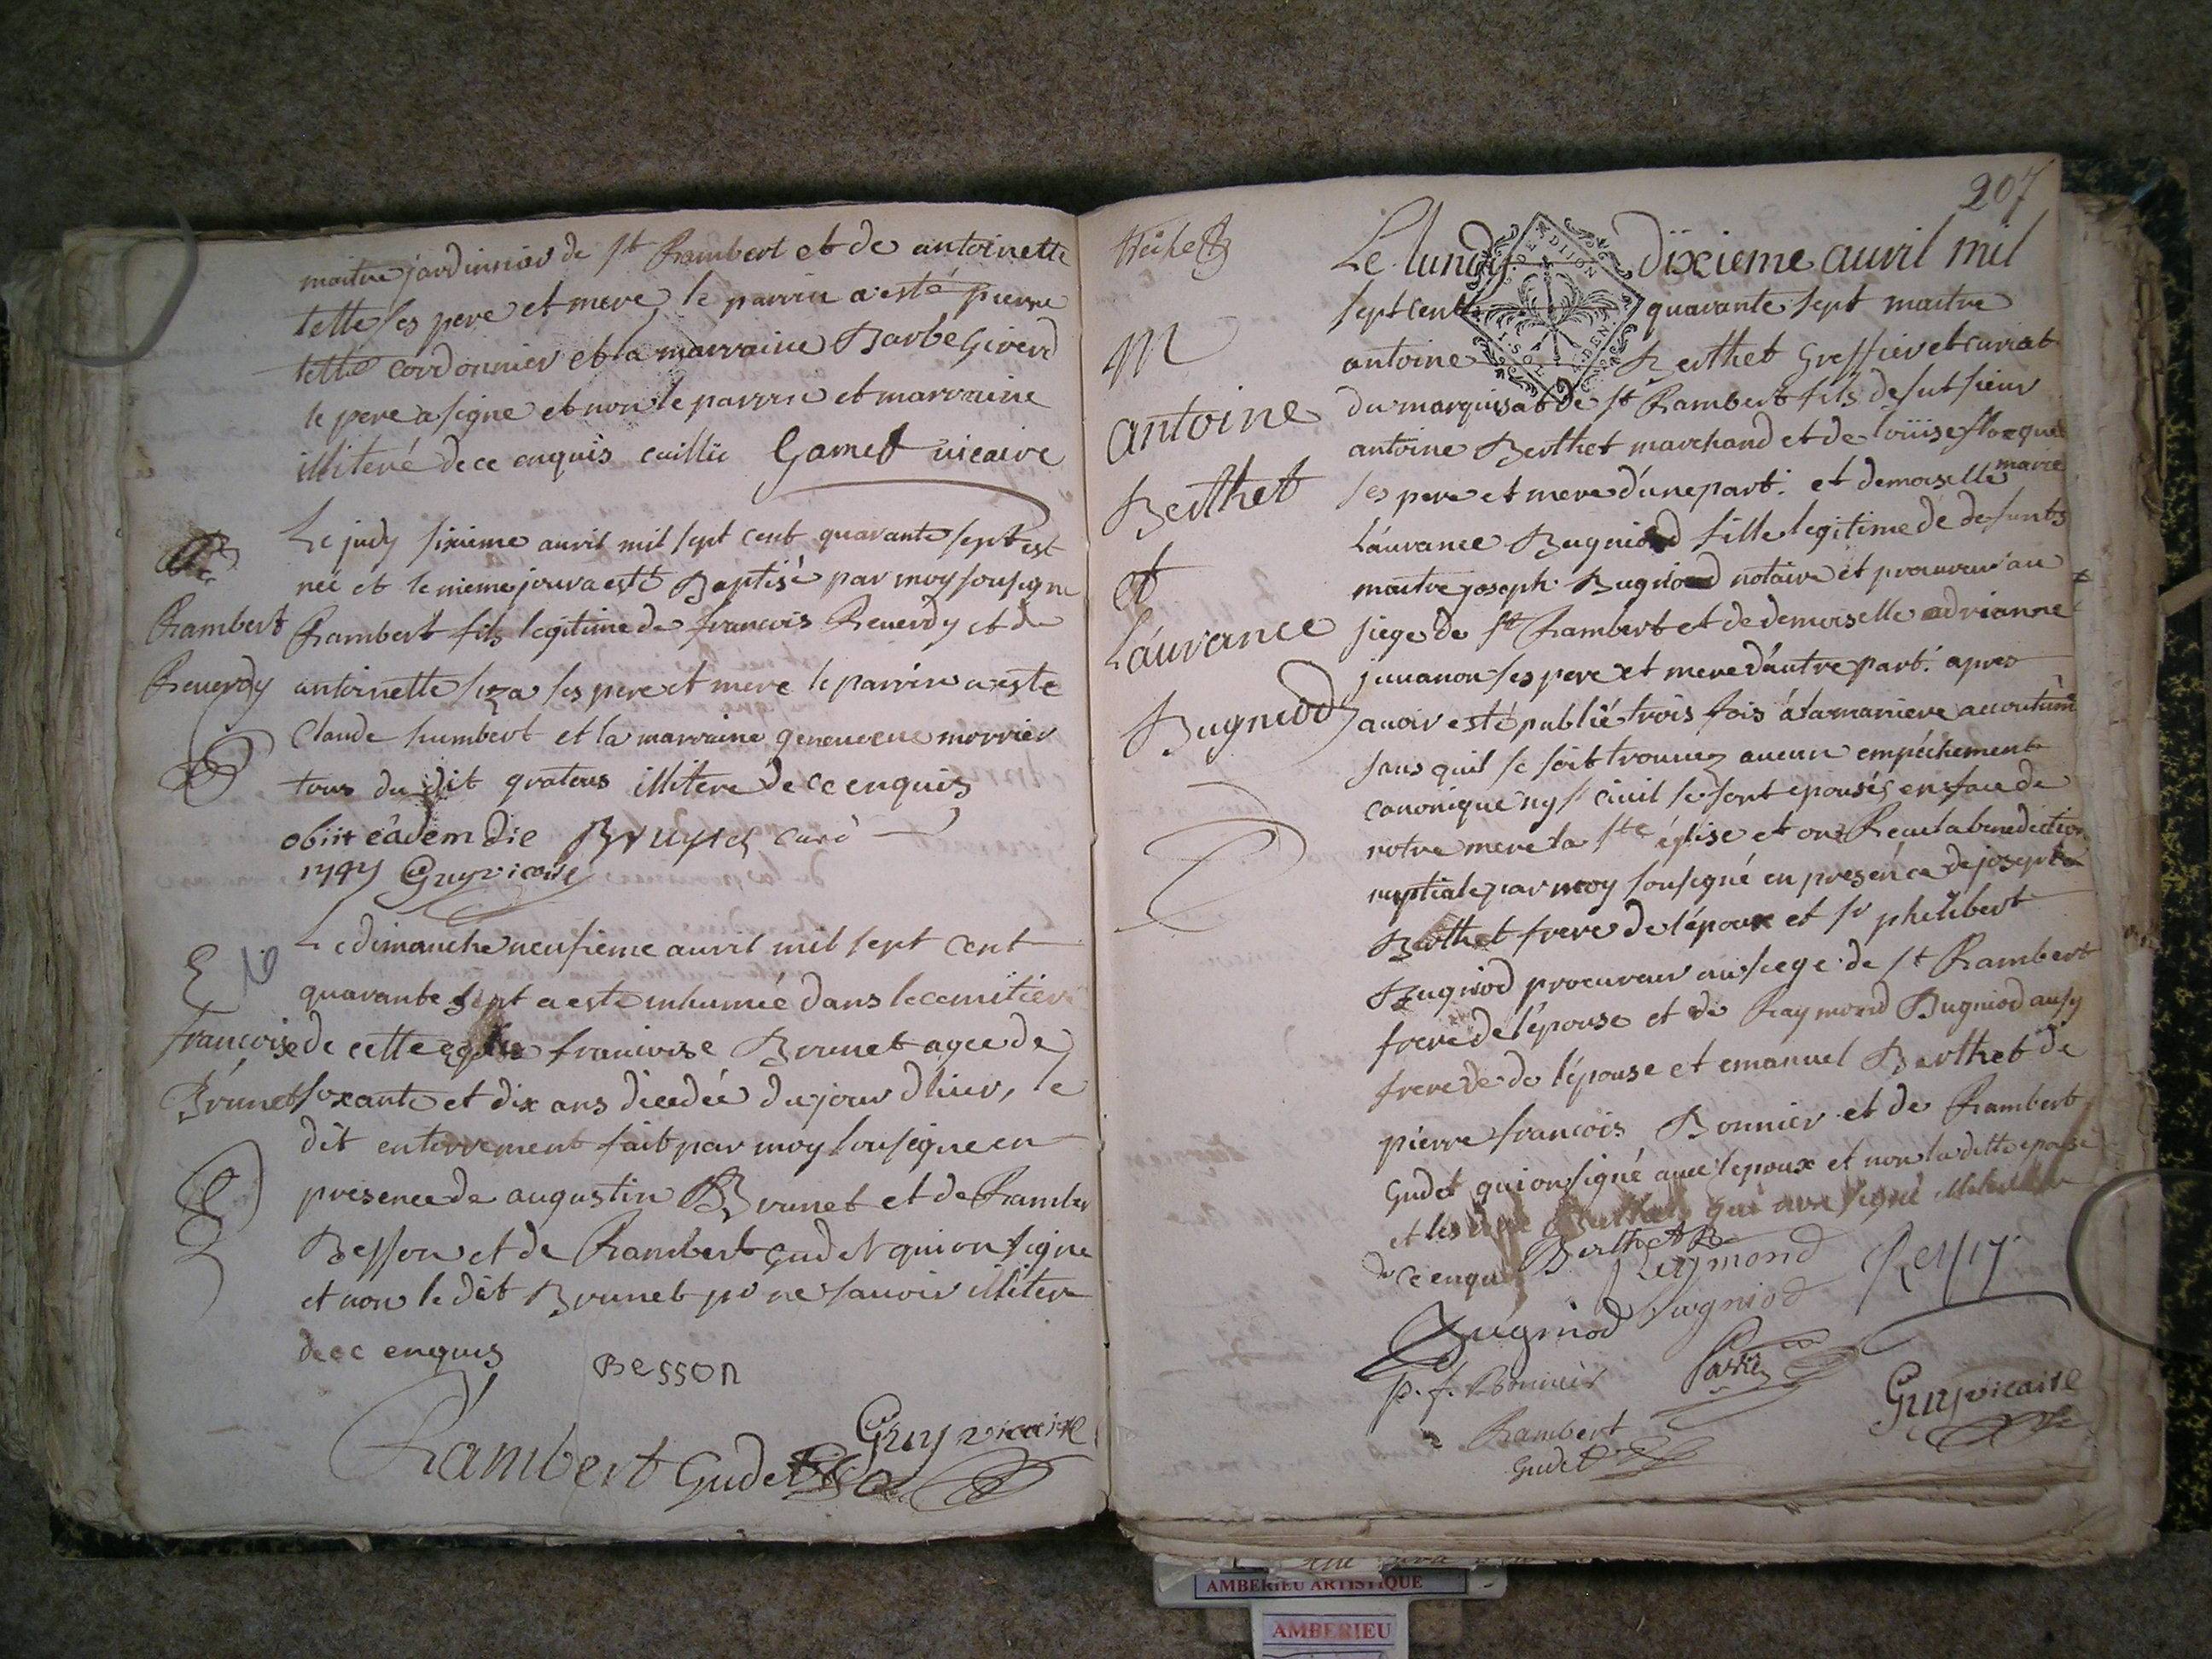 maitre jardinnier de st Rambert et de antoinette
tette ses pere et mere, le parrin a esté pierre
tette cordonnier et la marraine Barbe Giverd
le pere a signe et non le parrin et marraine
illiteré de ce enquis cuillié Gamet vicaire
B
Rambert
Reuerdy
Le judy sixieme auril mil sept cent quarante sept est
neé et le meme jour a esté Baptisé par moy sousigne
Rambert fils legitime de francois Reuerdy et de
antoinette siza ses pere et mere le parrin a esté
Claude humbert et la marraine geneueue morrier
tous du dit gratous illitere de ce enquis
obiit eâdem die Bruyset curé
1747 Guy vicaire
E
francoise
Brunet
Le dimanche neusieme auril mil sept cent
quarante sept a esté inhumée dans le cemitiere
de cette eglise francoise Brunet agee de
soxante et dix ans dicedée du jour d'hier, le
dit enterrement fait par moy sousigne en
presence de augustin Brunet et de Ramber
Besson et de Rambert Gudet qui on signe
et non le dit Brunet pr ne sauoir illitere
de ce enquis
Besson
Guy vicaire
Rambert Gudet
207
M
antoine
Berthet
et
Láurance
Bugniod
Le lundy dixieme auril mil
sept cent quarante sept maitre
antoine Berthet Greffier et curiat
du marquisat de st Rambert fils de fut sieur
antoine Berthet marchand et de loüise
ses pere et mere d'une part. et demoiselle marie
Láurance Bugniod fille legitime de defunts
maitre joseph Bugniod notaire et procureur au
siege de st Rambert et de demoiselle adrianne
juuanon ses pere et mere d'autre part. apres
auoir esté publié trois fois á la maniere accoutumé
sans quil se soit trouuez aucun empéchement
canonique ny ciuil se sont epousés en face de
notre mere la ste église et on Recu la benediction
nuptiale par moy sousigné en presence de joseph
Berthet frere de l'époux et sr philibert
Bugniod procureur au siege de st Rambert
frere de l'épouse et de Raymond Bugniod ausy
frere de l'épouse et emanuel Berthet de
pierre francois Bonnier et de Rambert
Gudet qui on signé auec l'epoux et non la ditte epouse
et les qui non signé
de ce enquis Berthet
Reymond Bugniod
Bugniod
p. f. Bonnier
Rambert
Gudet
Guy vicaire
AMBERIEU ARTISTIQUE
AMBERIEU